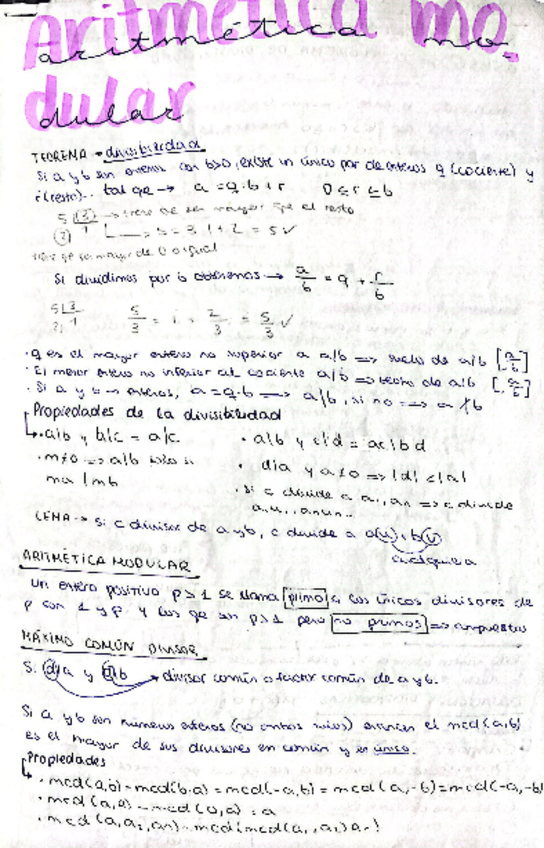 Aritmética mo-
dular
aritmética mo-
dular
TEOREMA → divisibilidad
Si a y b son enteros con b>0, existe un único par de enteros q (cociente) y
r (resto).. tal que → a = q·b + r 0 ≤ r ≤ b
5 | 3 → tiene que ser mayor que el resto
2 1 → 5 = 3·1 + 2 = 5 ✓
tiene que ser mayor de 0 o igual
Si dividimos por b obtenemos → a/b = q + r/b
5 | 3 5/3 = 1 + 2/3 = 5/3 ✓
2 1
· q es el mayor entero no superior a a/b => suelo de a/b [a/b]
· El menor entero no inferior al cociente a/b => techo de a/b [a/b]
· Si a y b → enteros, a = q·b => a/b, si no => a ∤ b
Propiedades de la divisibilidad
· a|b y b|c = a|c. · a|b y c|d = ac|bd
· m≠0 => a|b
ma | mb · d|a y a≠0 => |d| < |a|
· Si c divide a a₁, aₙ => c divide
LEMA → Si c divisor de a y b, c divide a a(u) + b(v)
cualquiera
ARITMÉTICA MODULAR
Un entero positivo p>1 se llama primo a los únicos divisores de
p son 1 y p. y los que son p>1 pero no primos => compuestos
MÁXIMO COMÚN DIVISOR
Si d|a y d|b → divisor común o factor común de a y b.
Si a y b son números enteros (no ambos nulos) entonces el mcd(a,b)
es el mayor de sus divisores en común y es único.
Propiedades
· mcd(a,b) = mcd(b·a) = mcd(-a,b) = mcd(a,-b) = mcd(-a,-b)
· mcd(a,0) = mcd(0,a) = a
· mcd(a,a₂,aₙ) = mcd(mcd(a₁,a₂)aₙ)